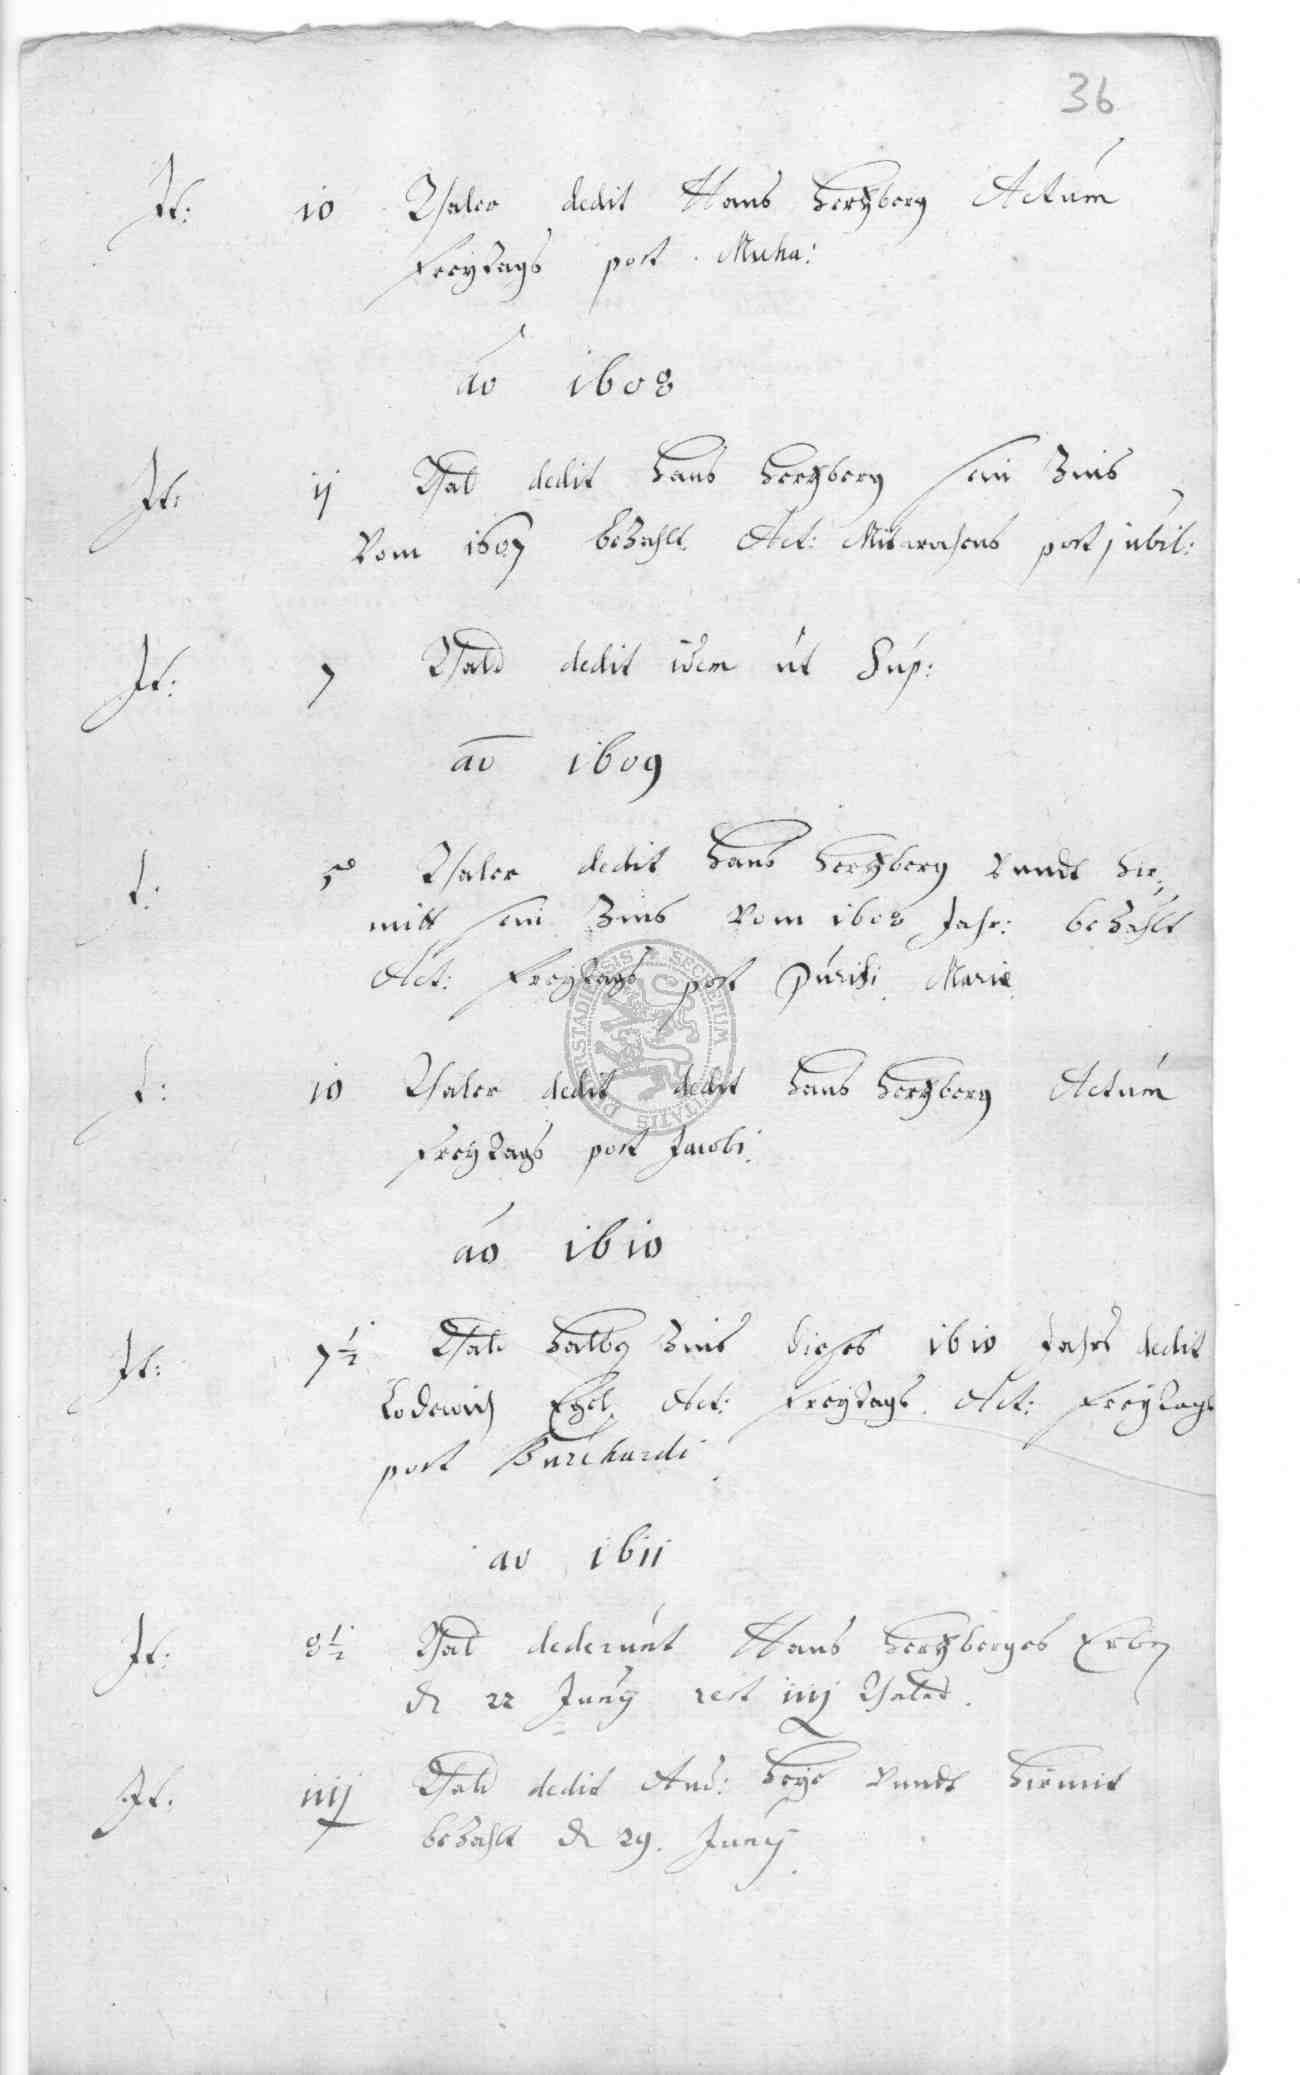 36
It: 10 Thaler dedit Hans Hertzberg Actum
Freytags post Micha:
ao 1608
It: ij Thal dedit Hans Hertzberg sein Zins
vom 1607 bezahlt Act: Mitwochens post jubil:
It: 7 Thald dedit idem ut sup:
ao 1609
t: 5 Thaler dedit Hans Hertzberg vnndt hir,
mitt sein Zins vom 1608 Jahr: bezahlt
Act: Freytags post Purifi. Marie
t: 10 Thaler dedit dedit Hans Hertzberg Actum
Freytags post Jacobi.
ao 1610
It: 7½ Thald halbe Zins dieses 1610 Jahrs dedit
Lodewich Act: Freytags. Act: Freytags
post Burchardi
ao 1611
It: 8½ Thal dederunt Hans Hertzberges Erben
d 22 Junij rest iiij Thaler.
It: iiij Thald dedit And: Heye vnndt hirmit
bezahlt d 29. Junij
SECRETUM CIVITATIS DERRSTADIENSIS